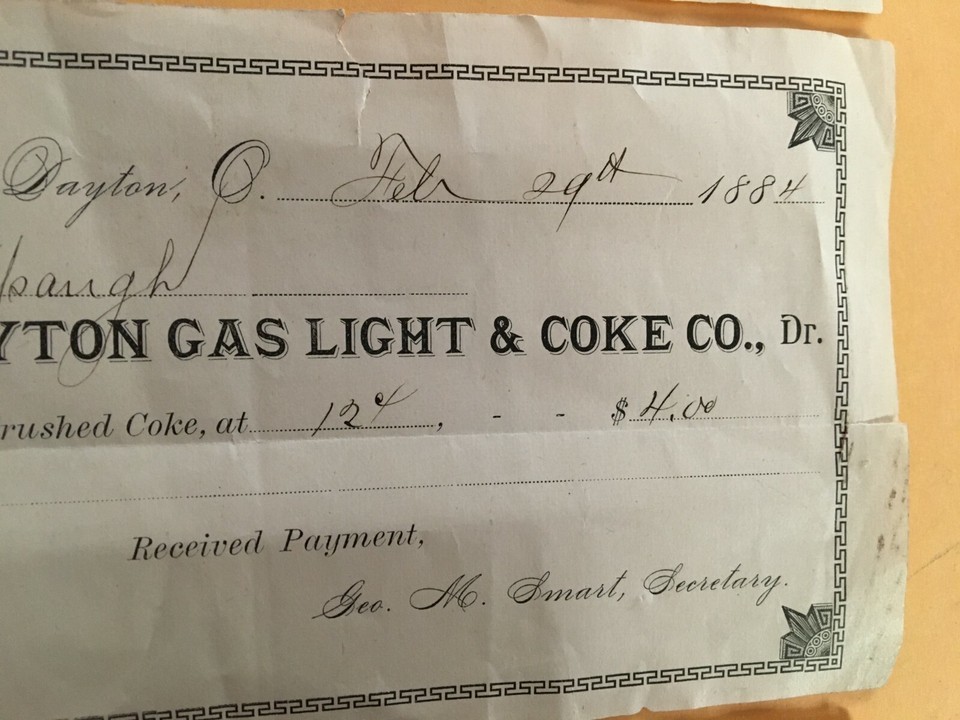 Dayton, O. Feb 29th 1884
paugh
YTON GAS LIGHT & COKE CO., Dr.
rushed Coke, at 12¢, - - $4.00
Received Payment,
Geo. M. Smart, Secretary.